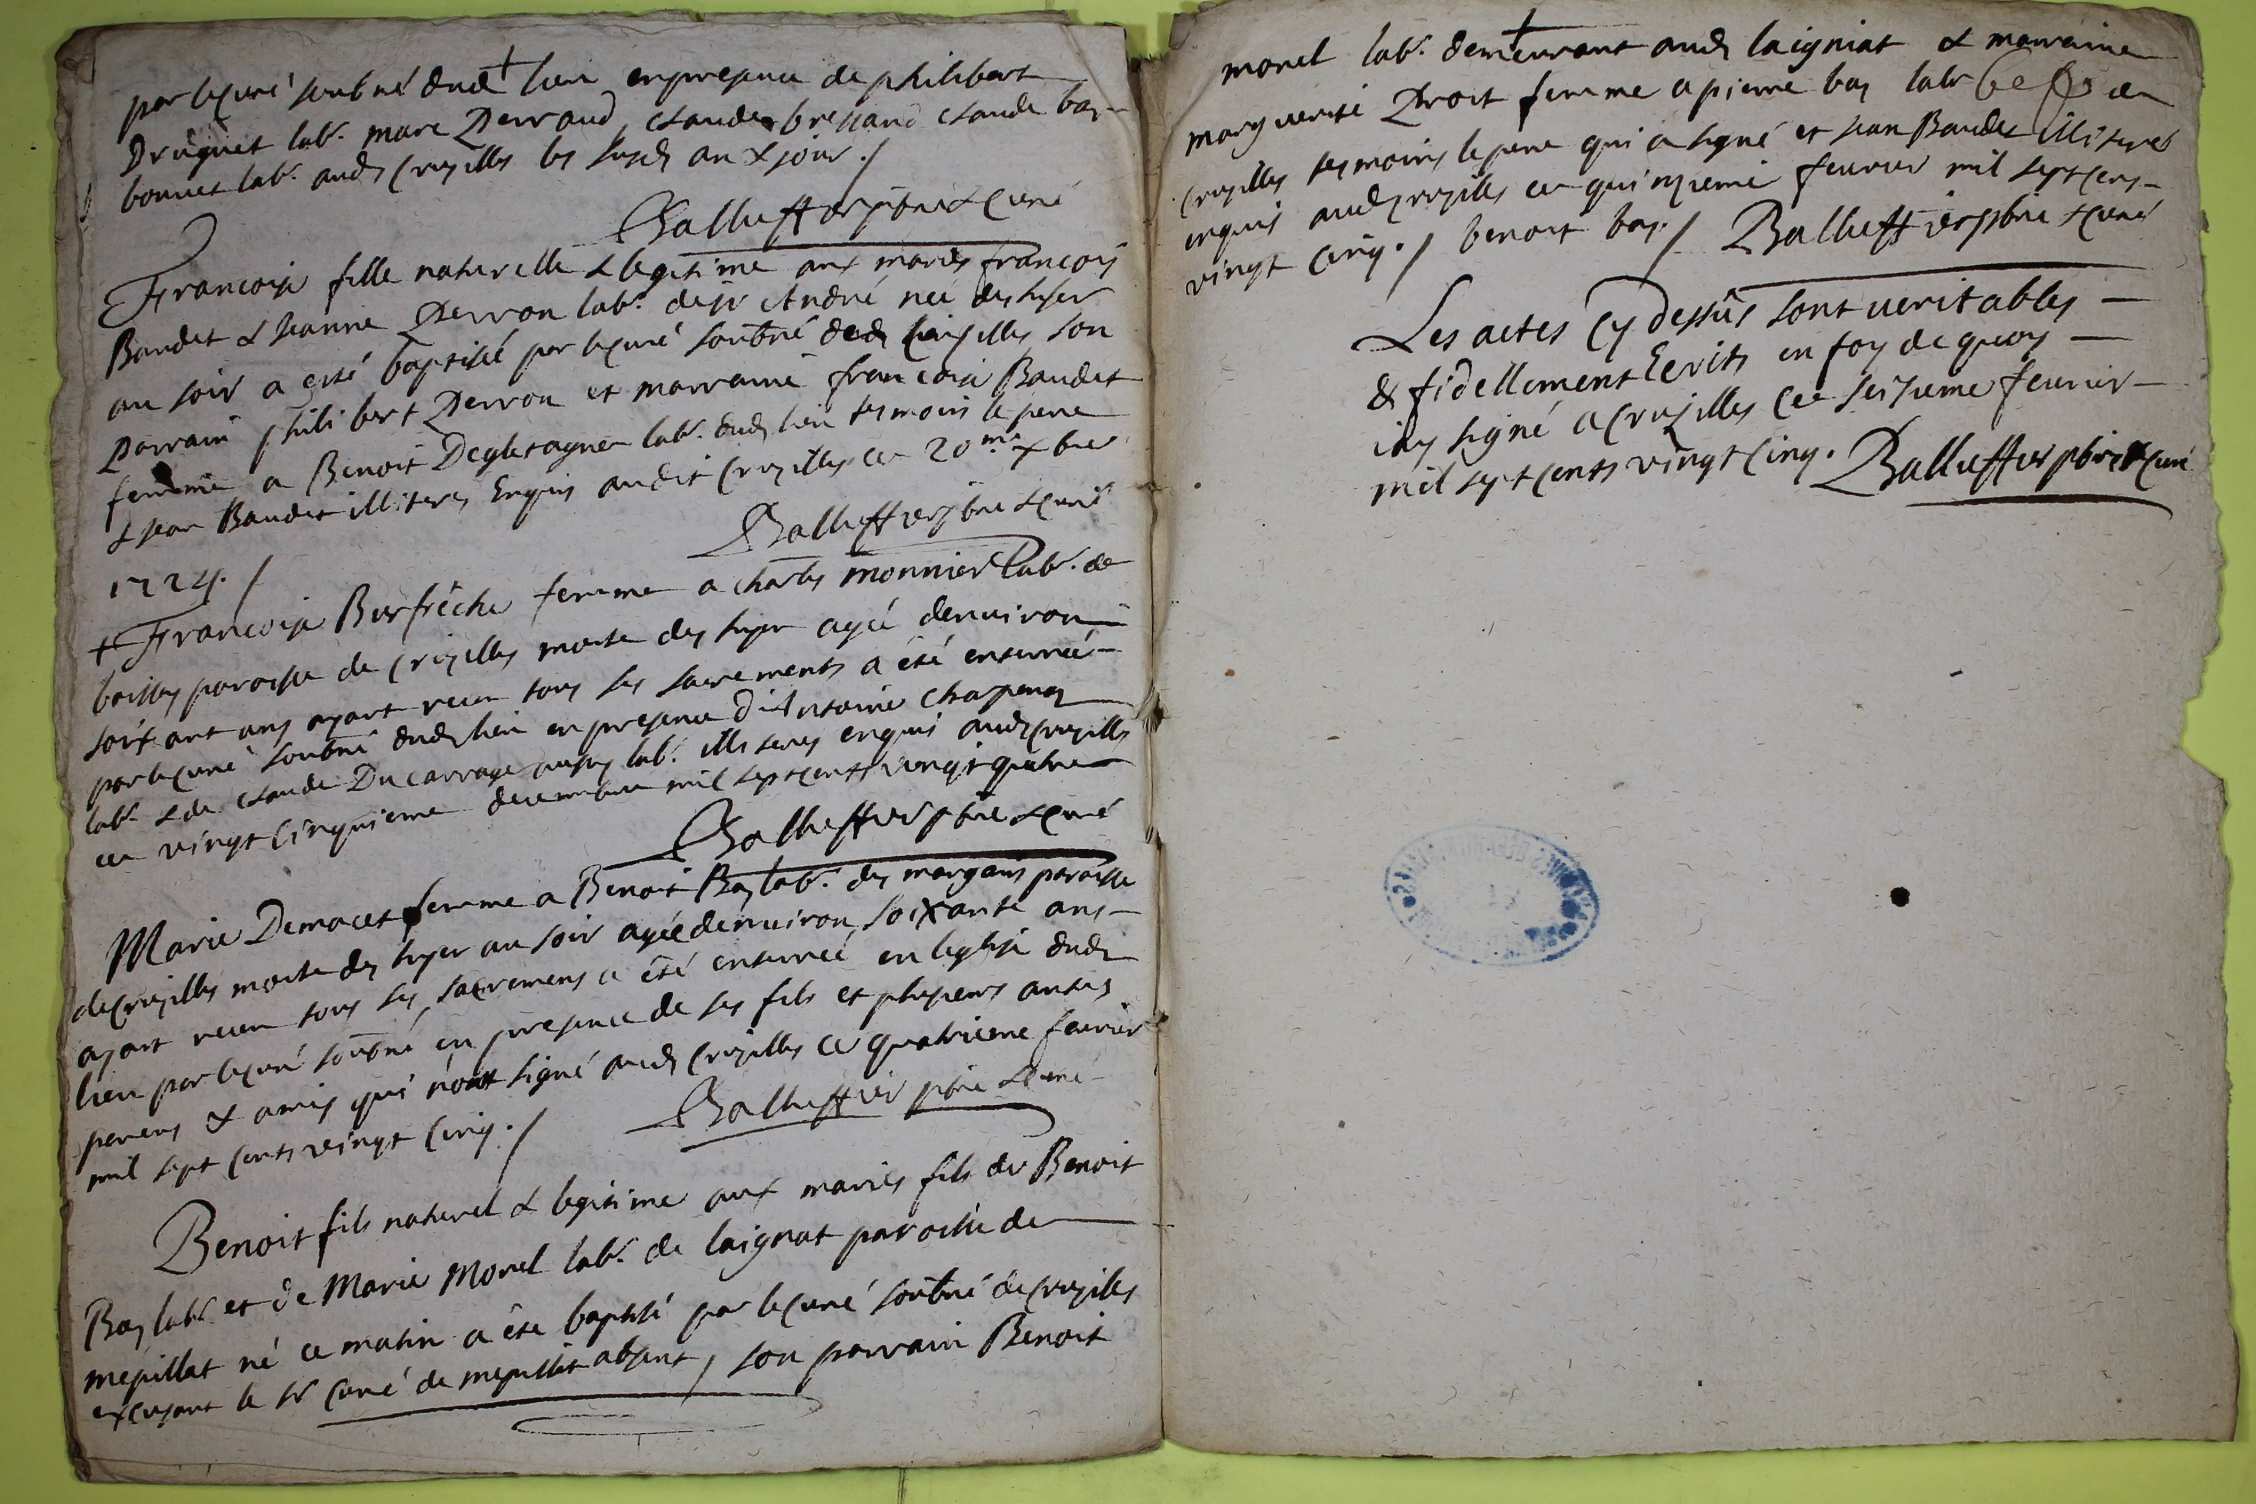 par le curé soubné dud lieu en presence de philibert
Druguet labr. marc Perraud, claude bressand claude bay
bonnet labr. aud cruzilles les susd an & jour ./
Balluffier pbre & curé
Francoise fille naturelle & legitime aux mariés francois
Baudet & Jeanne Perron labr. de st André née des hyer
au soir a esté baptisée par le curé soubné ded cruzilles son
Parrain philibert Perron et marraine francoise Baudet
femme a Benoit Degletagne labr. dud lieu tesmoins le pere
& jean Baudet illiteres Enquis audit Cruzilles ce 20me xbre
1724. /
Balluffier pbre & curé
+ Francoise Burfrêche femme a charles monnier labr. de
boisses paroisse de Cruzilles morte des hyer agée denuiron
soixant ans ayant receu tous ses sacrements a été enterrée
par le curé soubné dud lieu en presence d'Antoine Chapenay
labr. & de claude Ducarrage aussy labr. illiteres enquis aud cruzilles
ce vingt Cinquieme decembre mil sept cents vingt quatre
Balluffier pbre & curé
Marie Demaces femme a Benoit Bay labr. des margains paroisse
de cruzilles morte des hyer au soir agée denuiron soixante ans
ayant receu tous ses sacremens a été enterrée en leglise dud
lieu par le curé soubné en presence de ses fils et plusieurs autes
parens & amis qui nont signé aud Cruzilles ce quatrieme feurier
mil sept Cents vingt Cinq. /
Balluffier pbre & curé
Benoit fils naturel & legitime aux mariés fils de Benoit
Bay labr et de Marie Morel labr. de laignat paroisse de
mepillat né ce matin a été baptisé par le curé soubné de cruzilles
excusant le sr Curé de mepillat absent, son parrain Benoit
morel labr. demeurant aud laigniat & marraine
marguerite Droit femme a pierre bay labr de
cruzilles tesmoins le pere qui a signé et jean Baudet illiteres
enquis aud cruzilles ce quinzieme feurier mil sept cens
vingt Cinq. / benoit bay. / Balluffier pbre & curé
Les actes Cy dessus sont ueritables
& fidellement Ecrits en foy de quoy
iay signé a Cruzilles Ce seizieme feurier
mil sept cents vingt Cinq. Balluffier pbre & curé